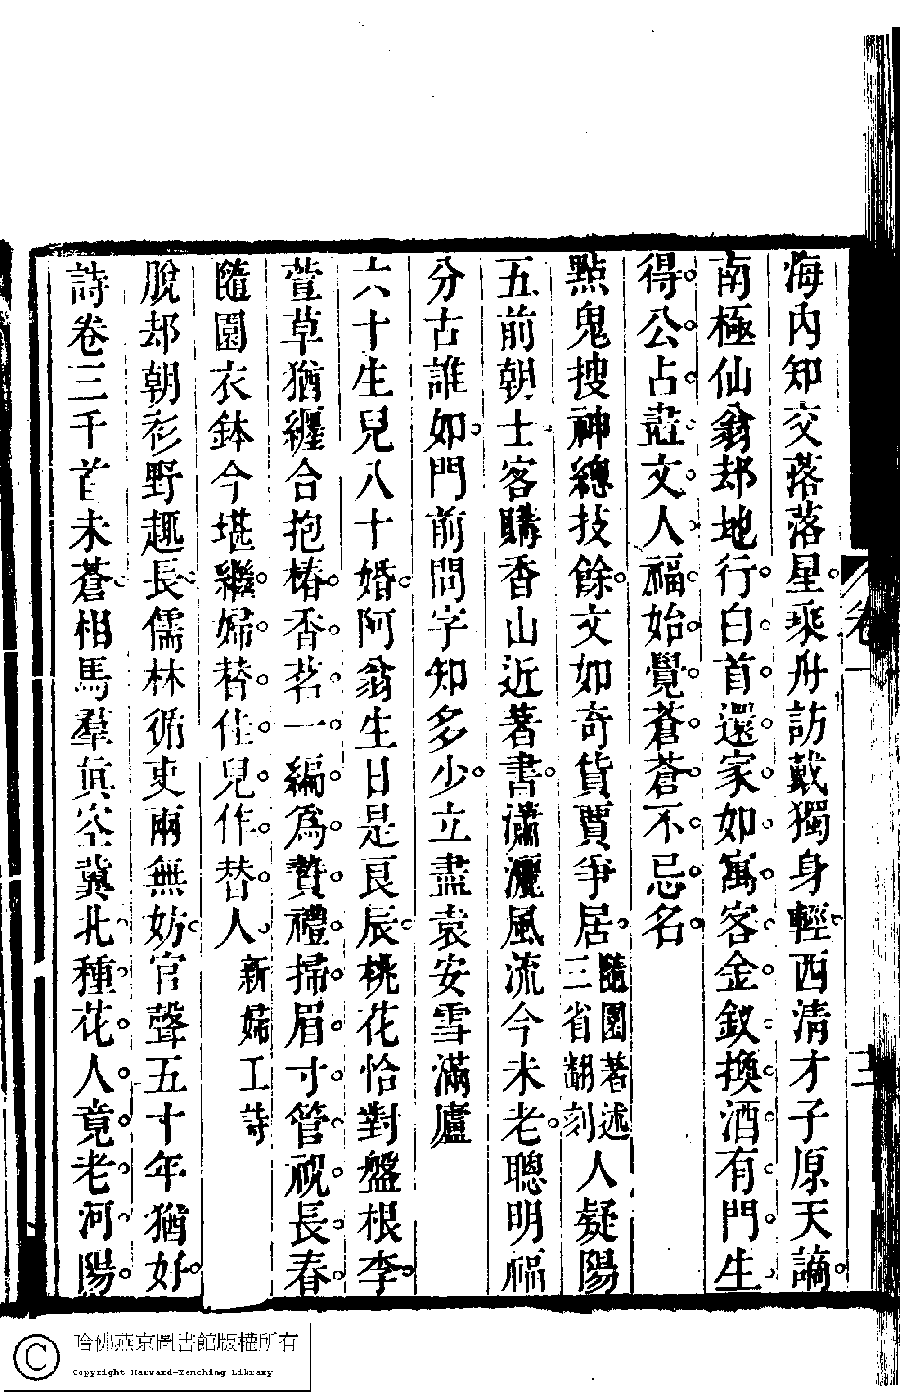 海內知交落落星乘舟訪戴獨身輕西清才子原天謫
南極仙翁却地行白首還家如寓客金釵換酒有門生
得公占盡文人福始覺蒼蒼不忌名
點鬼搜神總技餘文如奇貨賈爭居隨園著述三省翻刻人疑陽
五前朝士客購香山近著書瀟灑風流今未老聰明福
分古誰如門前問字知多少立盡袁安雪滿廬
六十生兒八十婚阿翁生日是良辰桃花恰對盤根李
萱草猶纏合抱椿香茗一編為贄禮掃眉寸管祝長春
隨園衣鉢今堪繼婦替佳兒作替人新婦工詩
脫却朝衫野趣長儒林循吏兩無妨官聲五十年猶好
詩卷三千首未蒼相馬羣真空冀北種花人竟老河陽
卷一
哈佛燕京圖書館版權所有
Copyright Harvard-Yenching Library